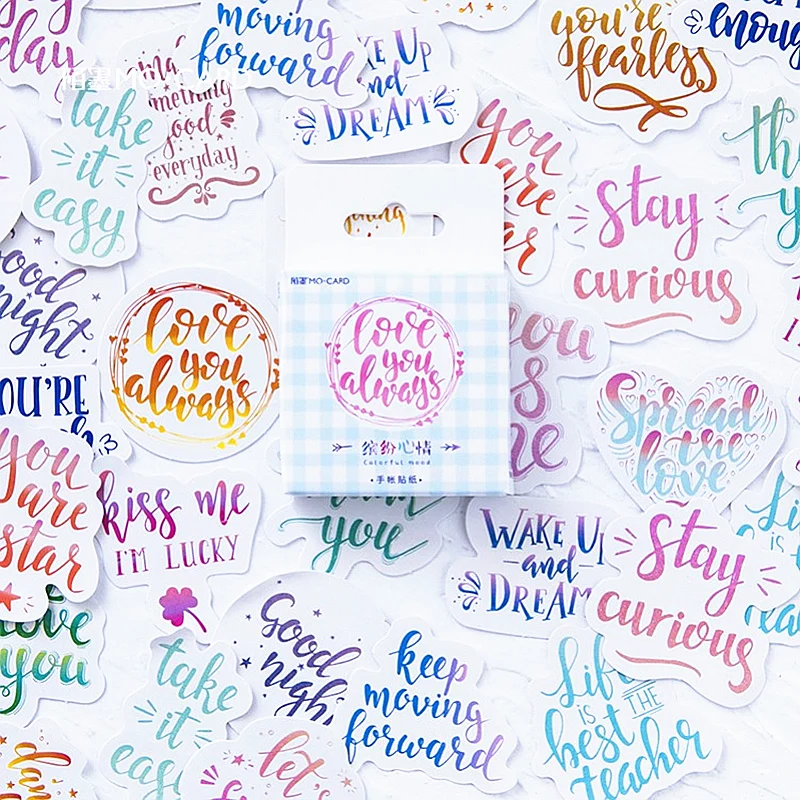 day
moving
forward
you're
fearless
enough
陌墨MO·CARD
take
it
easy
something
good
everyday
Up
and
DREAM
you
are
Stay
curious
good
night
陌墨MO-CARD
love
you
always
love
you
always
缤纷心情
Colorful mood
·手帐贴纸·
YOU'RE
you
Spread
the
love
you
are
star
kiss me
I'M LUCKY
you
WAKE UP
and
DREAM
Stay
curious
love
you
Good
night
keep
moving
forward
take
it
easy
Life
IS THE
best
teacher
let's